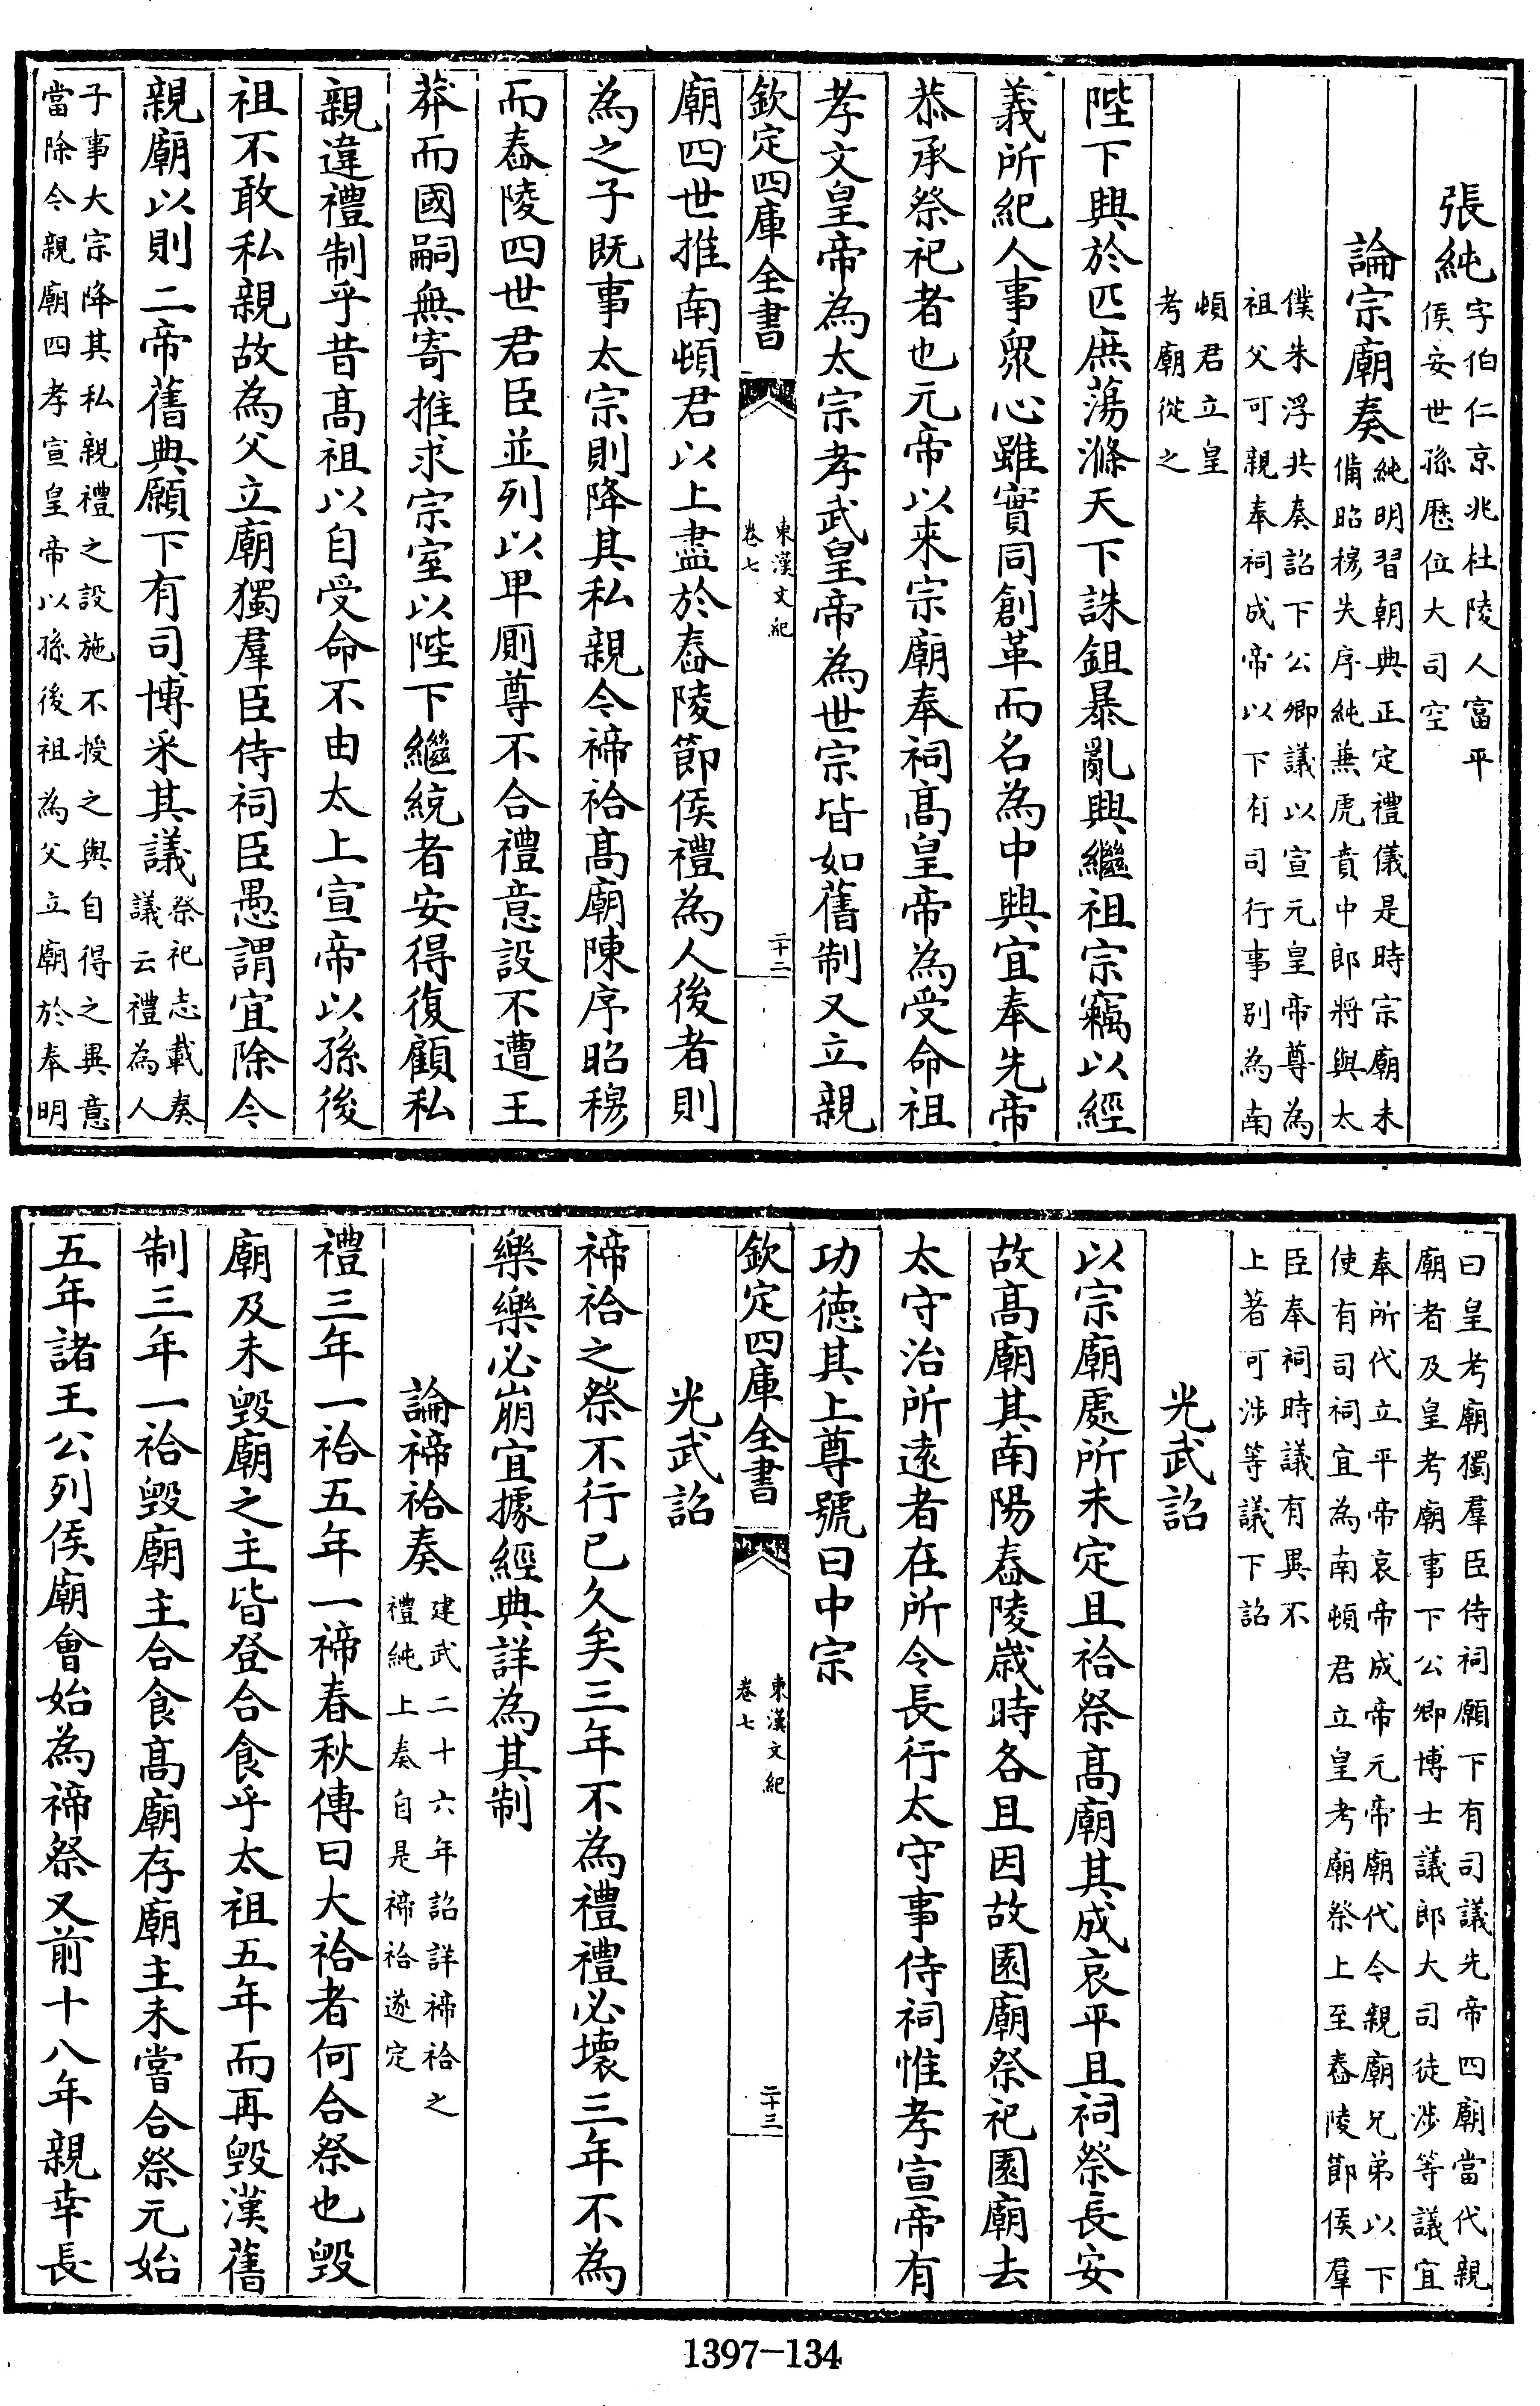 張純字伯仁京兆杜陵人富平
侯安世孫歴位大司空
論宗廟奏純明習朝典正定禮儀是時宗廟未
備昭穆失序純兼虎賁中郎將與太
僕朱浮共奏詔下公卿議以宣元皇帝尊為
祖父可親奉祠成帝以下有司行事别為南
頓君立皇
考廟從之
陛下興於匹庶蕩滌天下誅鉏暴亂興繼祖宗竊以經
義所紀人事衆心雖實同創革而名為中興宜奉先帝
恭承祭祀者也元帝以来宗廟奉祠髙皇帝為受命祖
孝文皇帝為太宗孝武皇帝為世宗皆如舊制又立親
欽定四庫全書
東漢文紀
卷七
二十二
廟四世推南頓君以上盡於舂陵節侯禮為人後者則
為之子既事太宗則降其私親今禘祫髙廟陳序昭穆
而舂陵四世君臣並列以卑厠尊不合禮意設不遭王
莽而國嗣無寄推求宗室以陛下繼統者安得復顧私
親違禮制乎昔髙祖以自受命不由太上宣帝以孫後
祖不敢私親故為父立廟獨羣臣侍祠臣愚謂宜除今
親廟以則二帝舊典願下有司博采其議祭祀志載奏
議云禮為人
子事大宗降其私親禮之設施不授之與自得之異意
當除今親廟四孝宣皇帝以孫後祖為父立廟於奉明
曰皇考廟獨羣臣侍祠願下有司議先帝四廟當代親
廟者及皇考廟事下公卿博士議郎大司徒涉等議宜
奉所代立平帝哀帝成帝元帝廟代今親廟兄弟以下
使有司祠宜為南頓君立皇考廟祭上至舂陵節侯羣
臣奉祠時議有異不
上著可涉等議下詔
光武詔
以宗廟處所未定且祫祭髙廟其成哀平且祠祭長安
故髙廟其南陽舂陵歳時各且因故園廟祭祀園廟去
太守治所逺者在所令長行太守事侍祠惟孝宣帝有
功德其上尊號曰中宗
欽定四庫全書
東漢文紀
卷七
二十三
光武詔
禘祫之祭不行已久矣三年不為禮禮必壞三年不為
樂樂必崩宜據經典詳為其制
論禘祫奏建武二十六年詔詳禘祫之
禮純上奏自是禘祫遂定
禮三年一祫五年一禘春秋傳曰大祫者何合祭也毁
廟及未毁廟之主皆登合食乎太祖五年而再毁漢舊
制三年一祫毁廟主合食髙廟存廟主未嘗合祭元始
五年諸王公列侯廟會始為禘祭又前十八年親幸長
1397-134